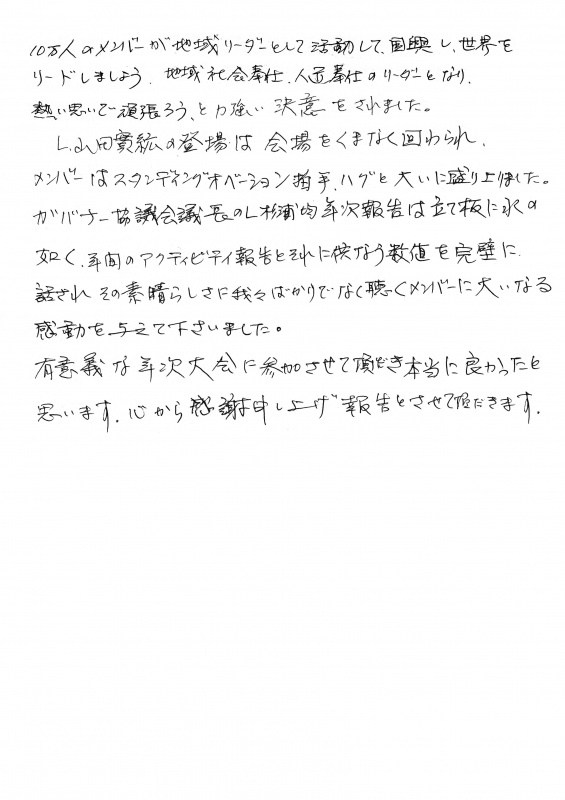 10万人のメンバーが地域リーダーとして活動して、国興し、世界を
リードしましょう、地域社会奉仕、人道奉仕のリーダーとなり、
熱い思いで頑張ろう、と力強い決意をされました。
L.山田實紘の登場は会場をくまなく回わられ、
メンバーはスタンディングオベーション拍手、ハグと大いに盛り上りました。
ガバナー協議会議長のL杉浦均年次報告は立て板に水の
如く、年間のアクティビティ報告とそれに供なう数値を完璧に
話されその素晴らしさに我々ばかりでなく聴くメンバーに大いなる
感動を与えて下さいました。
有意義な年次大会に参加させて頂き本当に良かったと
思います。心から感謝申し上げ報告とさせて頂だきます。